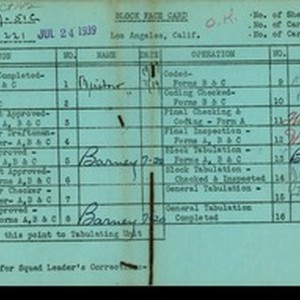 BLOCK FACE CARD
O.K.
No. of Sh
221 JUL 24 1939 Los Angeles, Calif.
No. of Car
No. of Car
ON NO. NAME DATE OPERATION NO.
Completed-
B & C 1
Coded-
Forms B & C 9
C 2
Coding Checked-
Forms B & C 10
t Approved-
A, B & C 3
Final Checking &
Coding - Form A 11
r Draftsman-
er- A,B & C 4
Final Inspection -
Forms A, B & C 12
oved -
A, B & C 5 Barney 7-20
Block Tabulation -
Forms A, B & C 13
t Approved-
ms A,B & C 6
Block Tabulation -
Checked & Inspected 14
r Checker -
er- A,B & C 7
General Tabulation - 15
proved -
orms A,B & C 8 Barney 7-20
General Tabulation
Completed 16
this point to Tabulating Unit
for Squad Leader's Corrections-